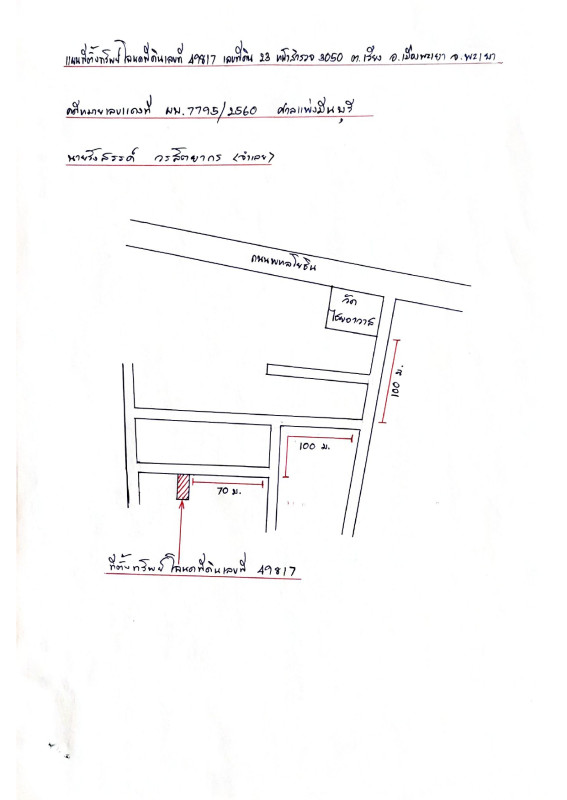 แผนที่ตั้งทรัพย์ โฉนดที่ดินเลขที่ 49817 เลขที่ดิน 23 หน้าสำรวจ 3050 ต.เวียง อ.เมืองพะเยา จ.พะเยา
คดีหมายเลขแดงที่ ผบ.7795/2560 ศาลแพ่งมีนบุรี
นายรังสรรค์ วรโชติยากร (จำเลย)
ถนนพหลโยธิน
วัด
ไชยอาวาส
100 ม.
100 ม.
70 ม.
ที่ตั้งทรัพย์ โฉนดที่ดินเลขที่ 49817